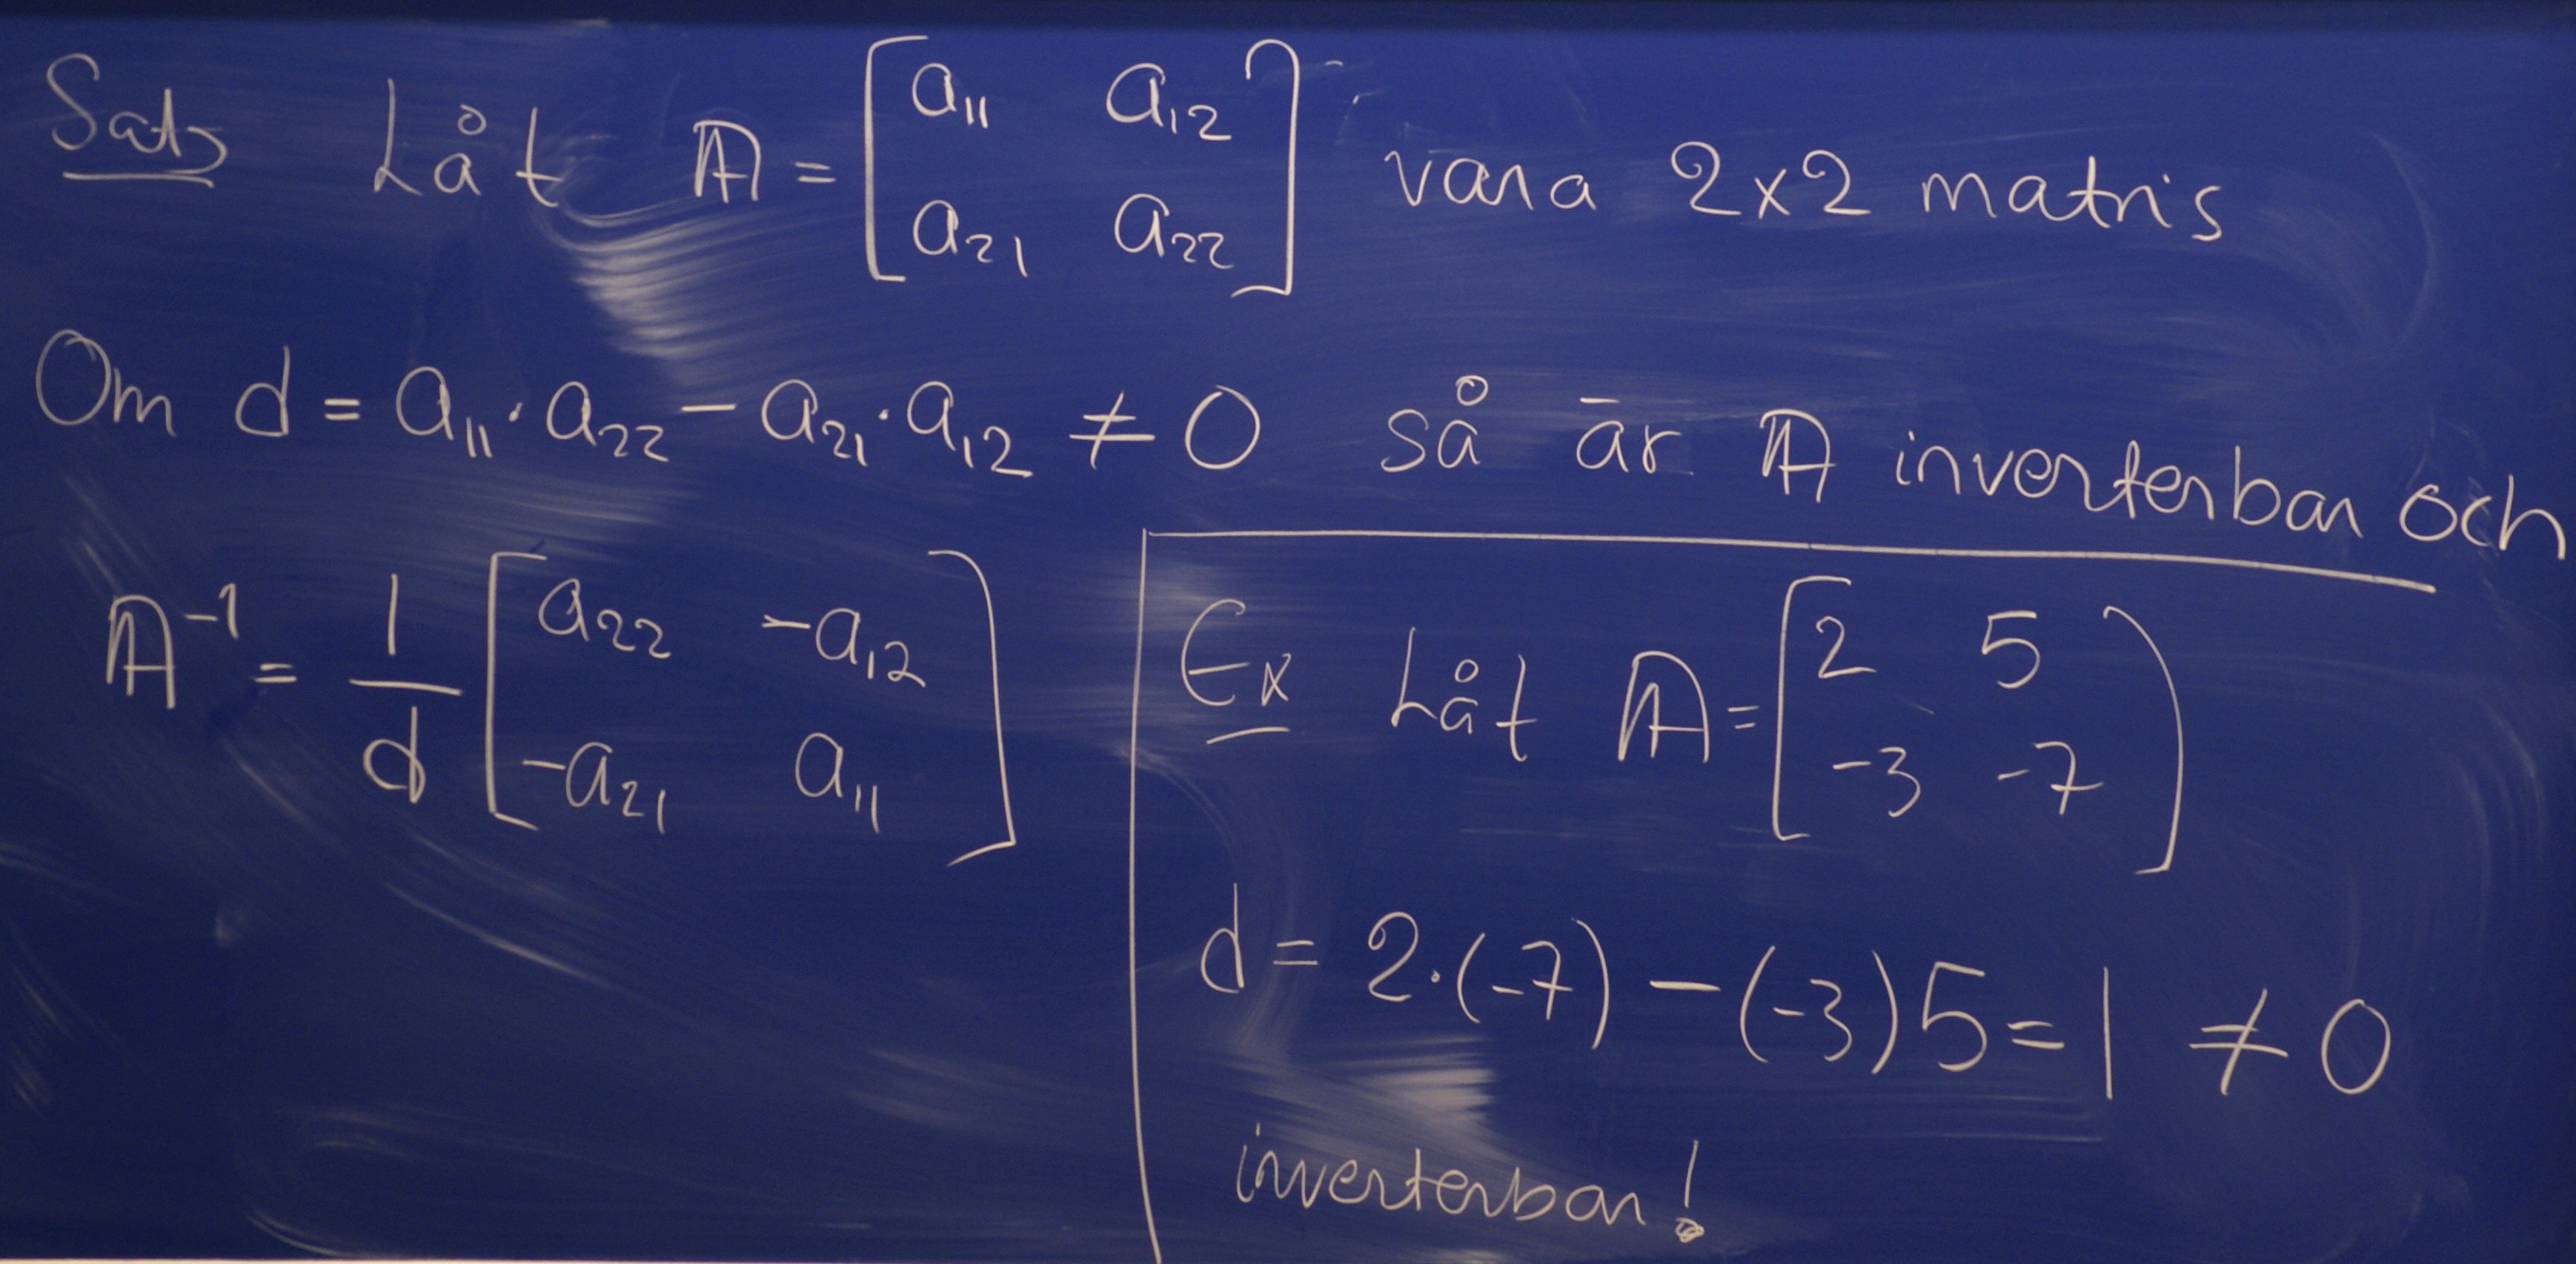 Sats Låt A = [a₁₁ a₁₂
a₂₁ a₂₂] vara 2x2 matris
Om d = a₁₁·a₂₂ − a₂₁·a₁₂ ≠ 0 så är A inverterbar och
A⁻¹ = 1/d [a₂₂ −a₁₂
−a₂₁ a₁₁]
Ex Låt A = [2 5
-3 -7]
d = 2·(-7) − (-3)5 = 1 ≠ 0
inverterbar!